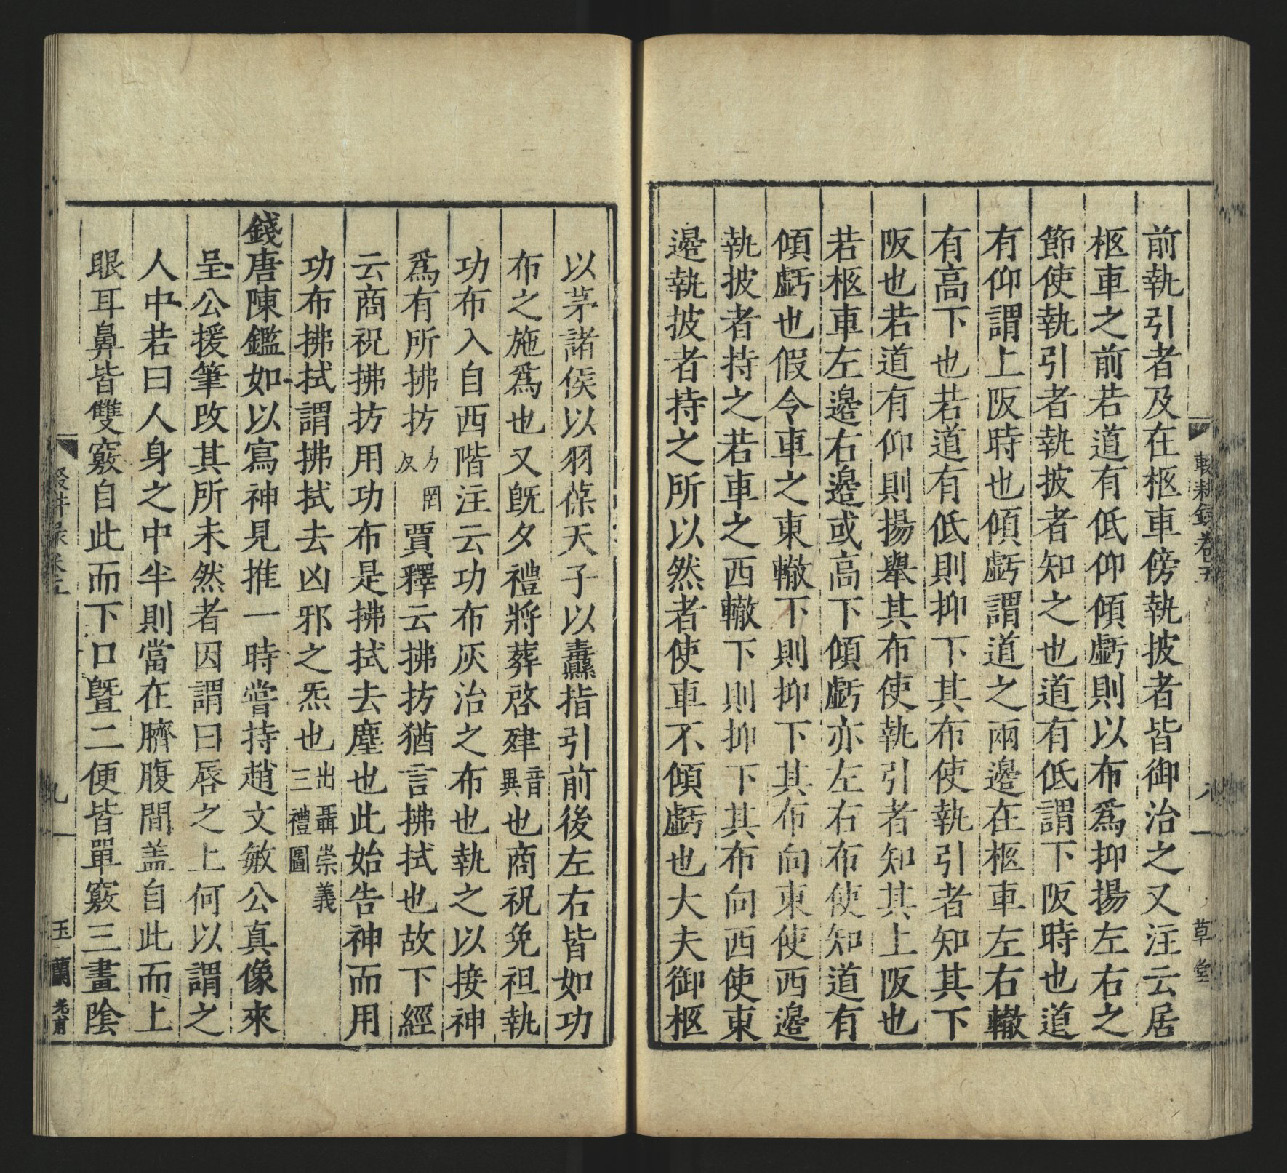 前執引者及在柩車傍執披者皆御治之又注云居
柩車之前若道有低仰傾虧則以布爲抑揚左右之
節使執引者執披者知之也道有低謂下阪時也道
有仰謂上阪時也傾虧謂道之兩邊在柩車左右轍
有高下也若道有低則抑下其布使執引者知其下
阪也若道有仰則揚舉其布使執引者知其上阪也
若柩車左邊右邊或高下傾虧亦左右布使知道有
傾虧也假令車之東轍下則抑下其布向東使西邊
執披者持之若車之西轍下則抑下其布向西使東
邊執披者持之所以然者使車不傾虧也大夫御柩
輟耕錄卷五
八
草堂
以茅諸侯以羽葆天子以纛指引前後左右皆如功
布之施爲也又旣夕禮將葬啓殔音異也商祝免袒執
功布入自西階注云功布灰治之布也執之以接神
爲有所拂扐方罔反賈釋云拂扐猶言拂拭也故下經
云商祝拂扐用功布是拂拭去塵也此始告神而用
功布拂拭謂拂拭去凶邪之炁也出聶崇義三禮圖
錢唐陳鑑如以寫神見推一時嘗持趙文敏公真像來
呈公援筆改其所未然者因謂曰唇之上何以謂之
人中若曰人身之中半則當在臍腹間盖自此而上
眼耳鼻皆雙竅自此而下口曁二便皆單竅三畫陰
輟耕錄卷五
九
玉蘭